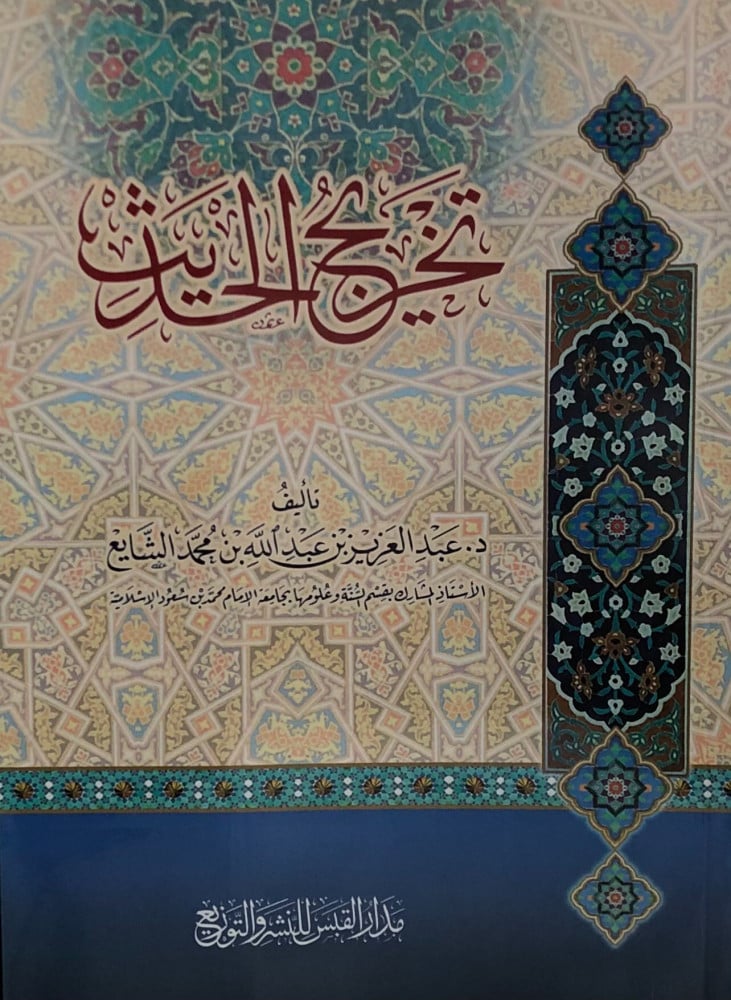 تخريج الحديث
تأليفُ
د. عَبْدِ العَزِيزِ بْنِ عَبْدِ اللَّهِ بْنِ مُحَمَّد الشَّايع
الأستاذ المشارك بقسم السُّنَّة وعُلومها بجامعة الإمام محمَّد بن سعُود الإسلامية
مَدَارُ القَبَس لِلنَّشْرِ وَالتَّوْزيع